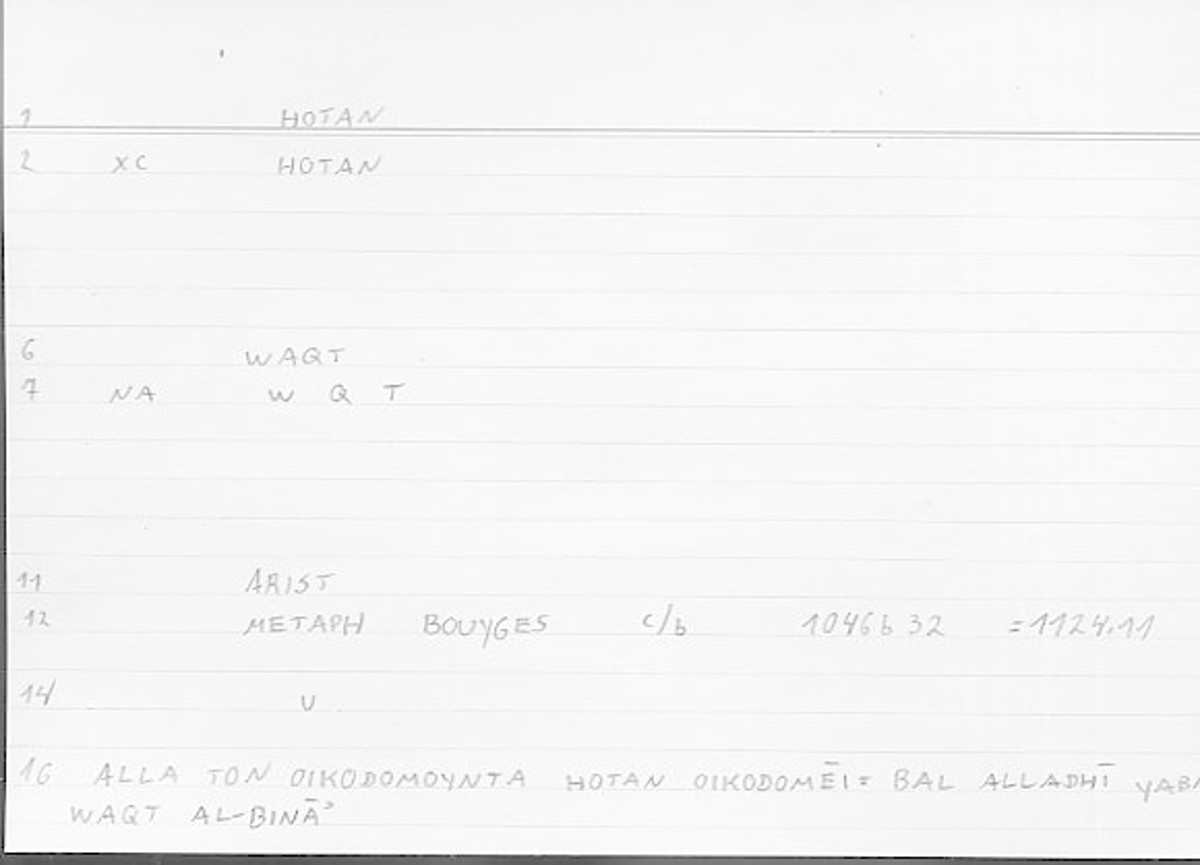 1 HOTAN
2 XC HOTAN
6 WAQT
7 NA W Q T
11 ARIST
12 METAPH BOUYGES c/b 1046b 32 =1124.11
14 U
16 ALLA TON OIKODOMOYNTA HOTAN OIKODOMĒI = BAL ALLADHĪ
WAQT AL-BINĀʾ